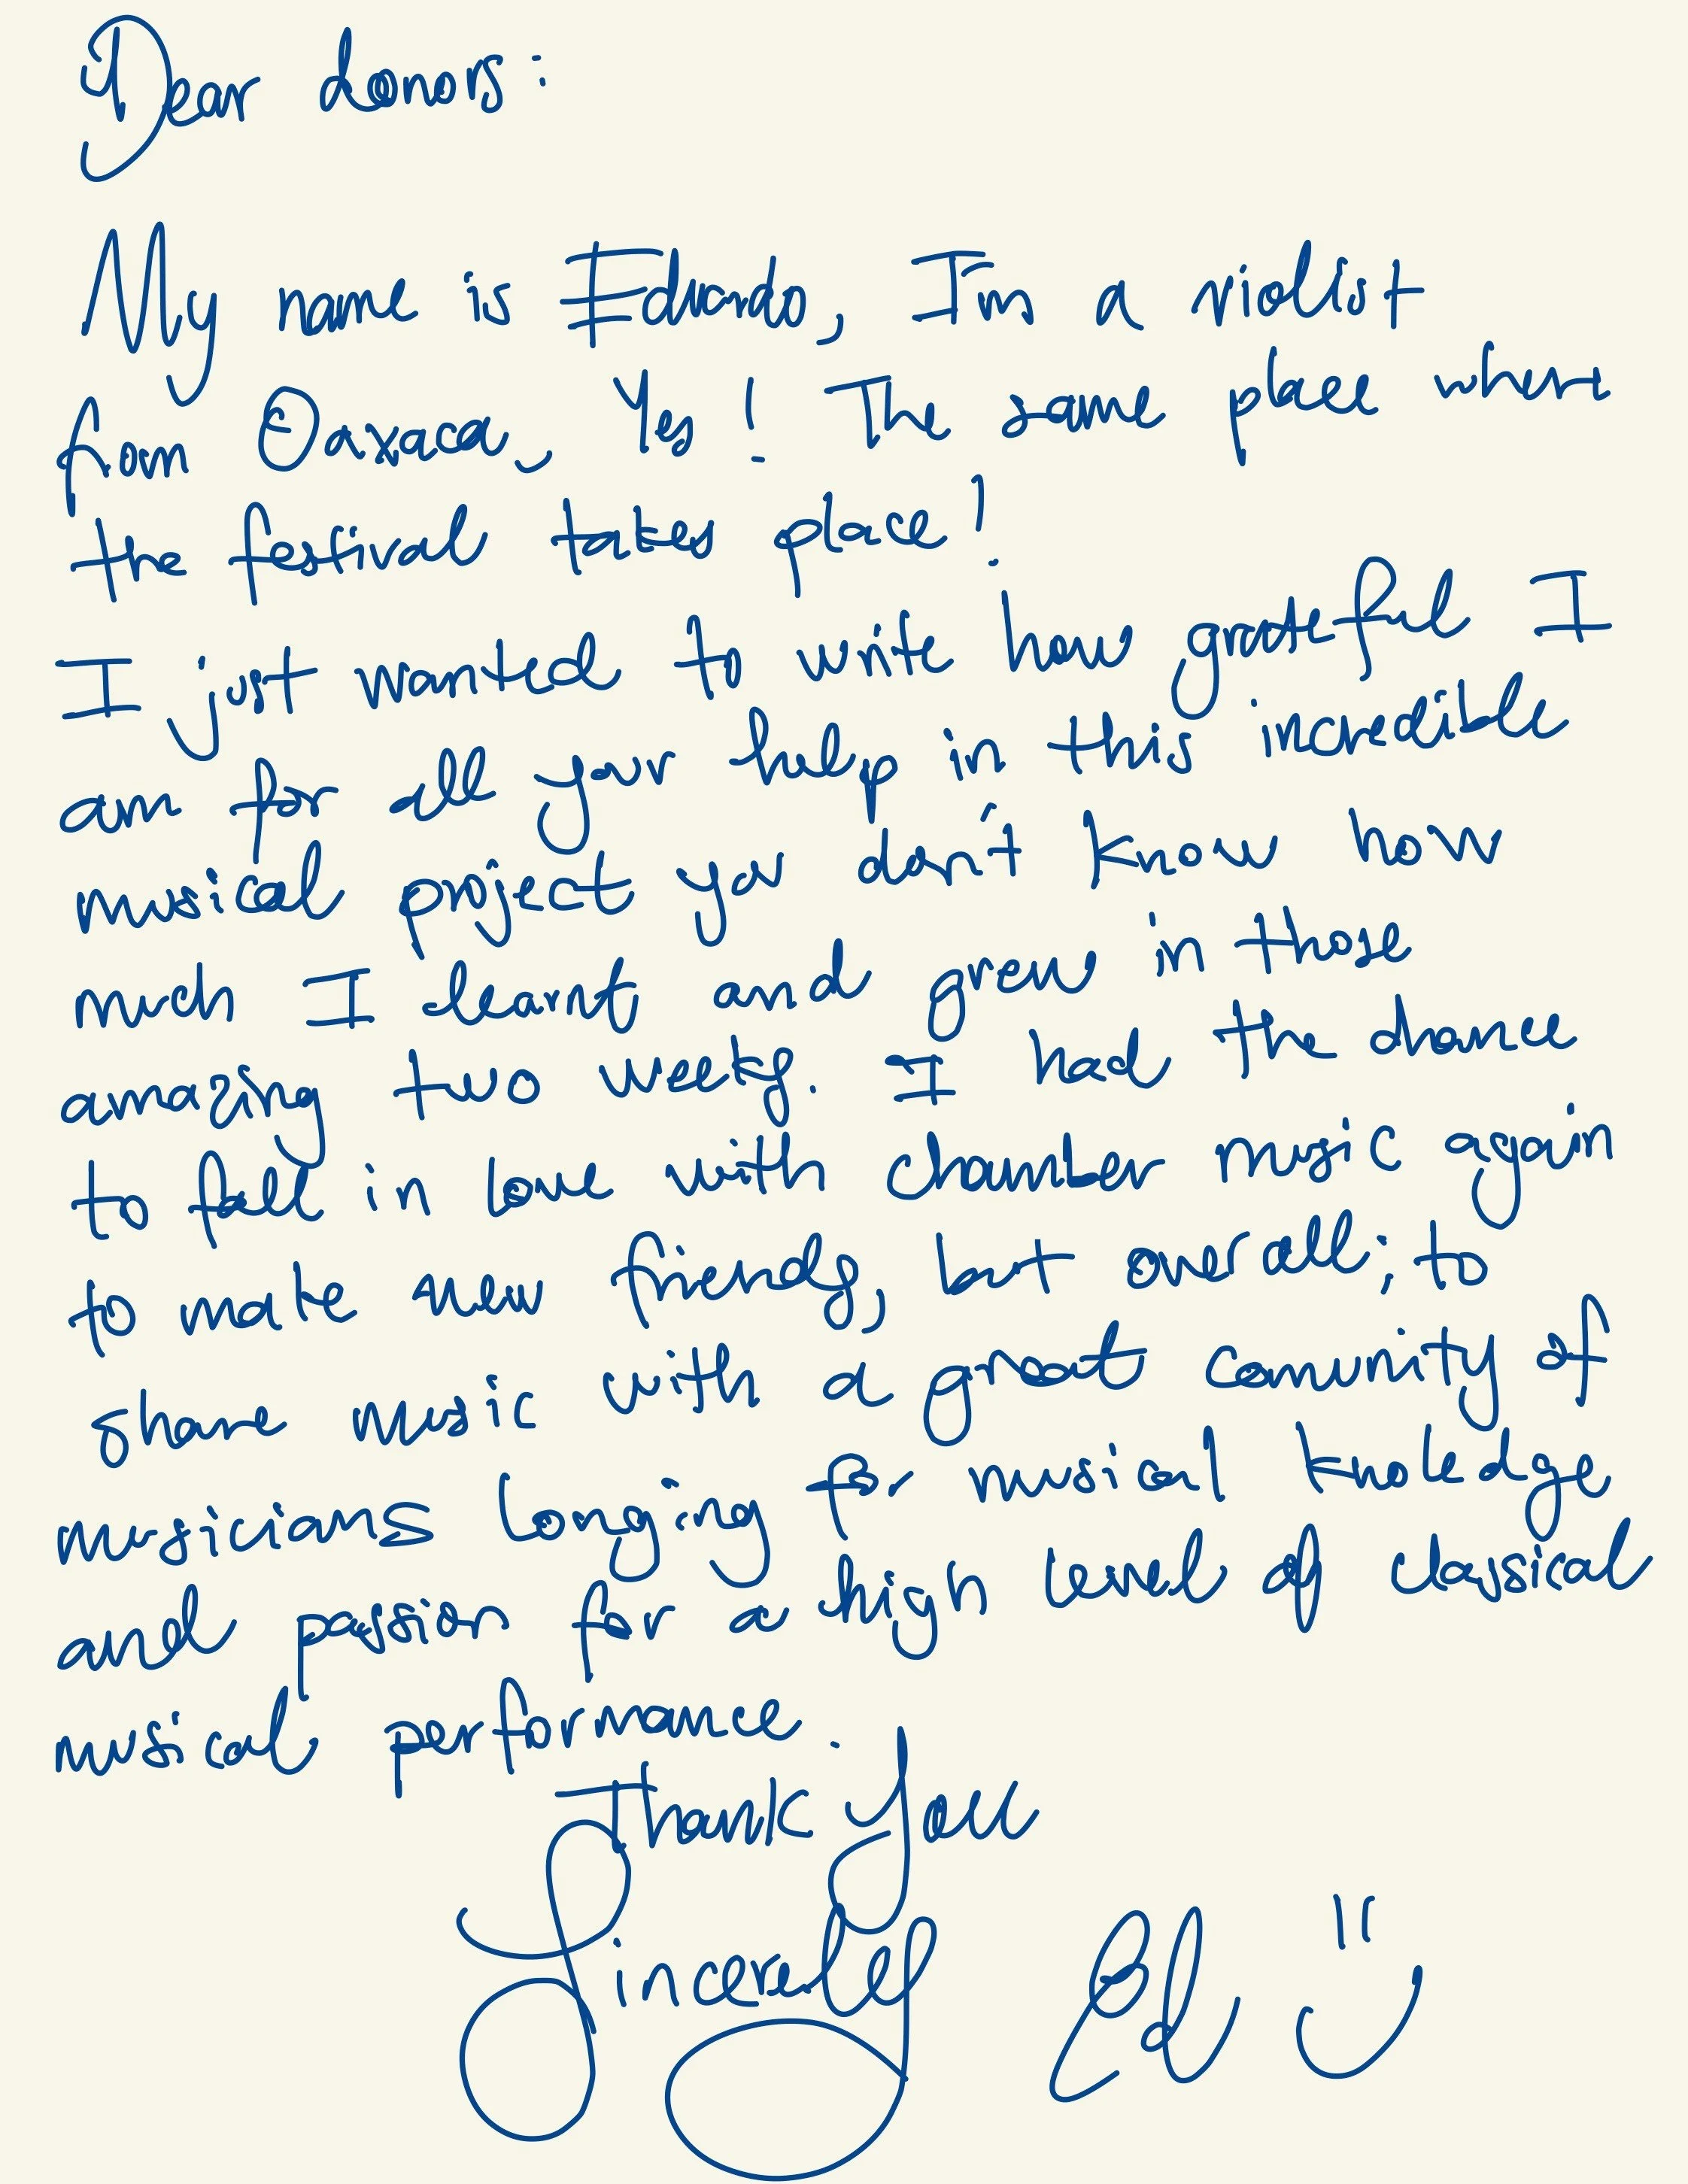 Dear donors:
My name is Eduardo, I'm a violist
from Oaxaca, Yes! The same place where
the festival takes place!
I just wanted to write how grateful I
am for all your help in this incredible
musical project you don't know how
much I learnt and grew in those
amazing two weeks. I had the chance
to fall in love with chamber music again
to make new friends, but overall; to
share music with a great comunity of
musicians longing for musical knoledge
and passion for a high level of classical
musical performance.
Thank You
Sincerely Ed